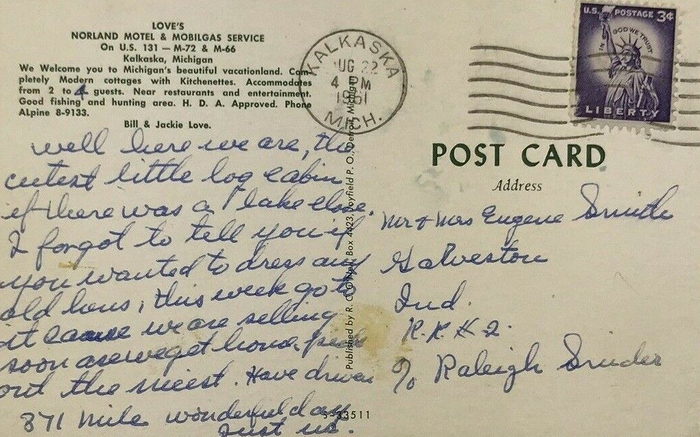 LOVE'S
NORLAND MOTEL & MOBILGAS SERVICE
On U.S. 131 — M-72 & M-66
Kalkaska, Michigan
We Welcome you to Michigan's beautiful vacationland. Com-
pletely Modern cottages with Kitchenettes. Accommodations
from 2 to 4 guests. Near restaurants and entertainment.
Good fishing and hunting area. H. D. A. Approved. Phone
Alpine 8-9133.
Bill & Jackie Love.
well here we are, the
cutest little log cabin
if there was a lake close.
I forgot to tell you if
you wanted to dress any
old hens, this week go to
it cause we are selling
soon as we get home.
out the nicest. Have driven
871 mile wonderful day
Just us.
KALKASKA
AUG 22
4 PM
1961
MICH.
U.S. POSTAGE 3¢
IN GOD WE TRUST
LIBERTY
POST CARD
Address
Mr & Mrs Eugene Snuder
Galveston
Ind.
R.R.#2.
% Raleigh Snuder
Published by R. O. Box 4423, Mayfield P. O., Detroit, Michigan
S-33511